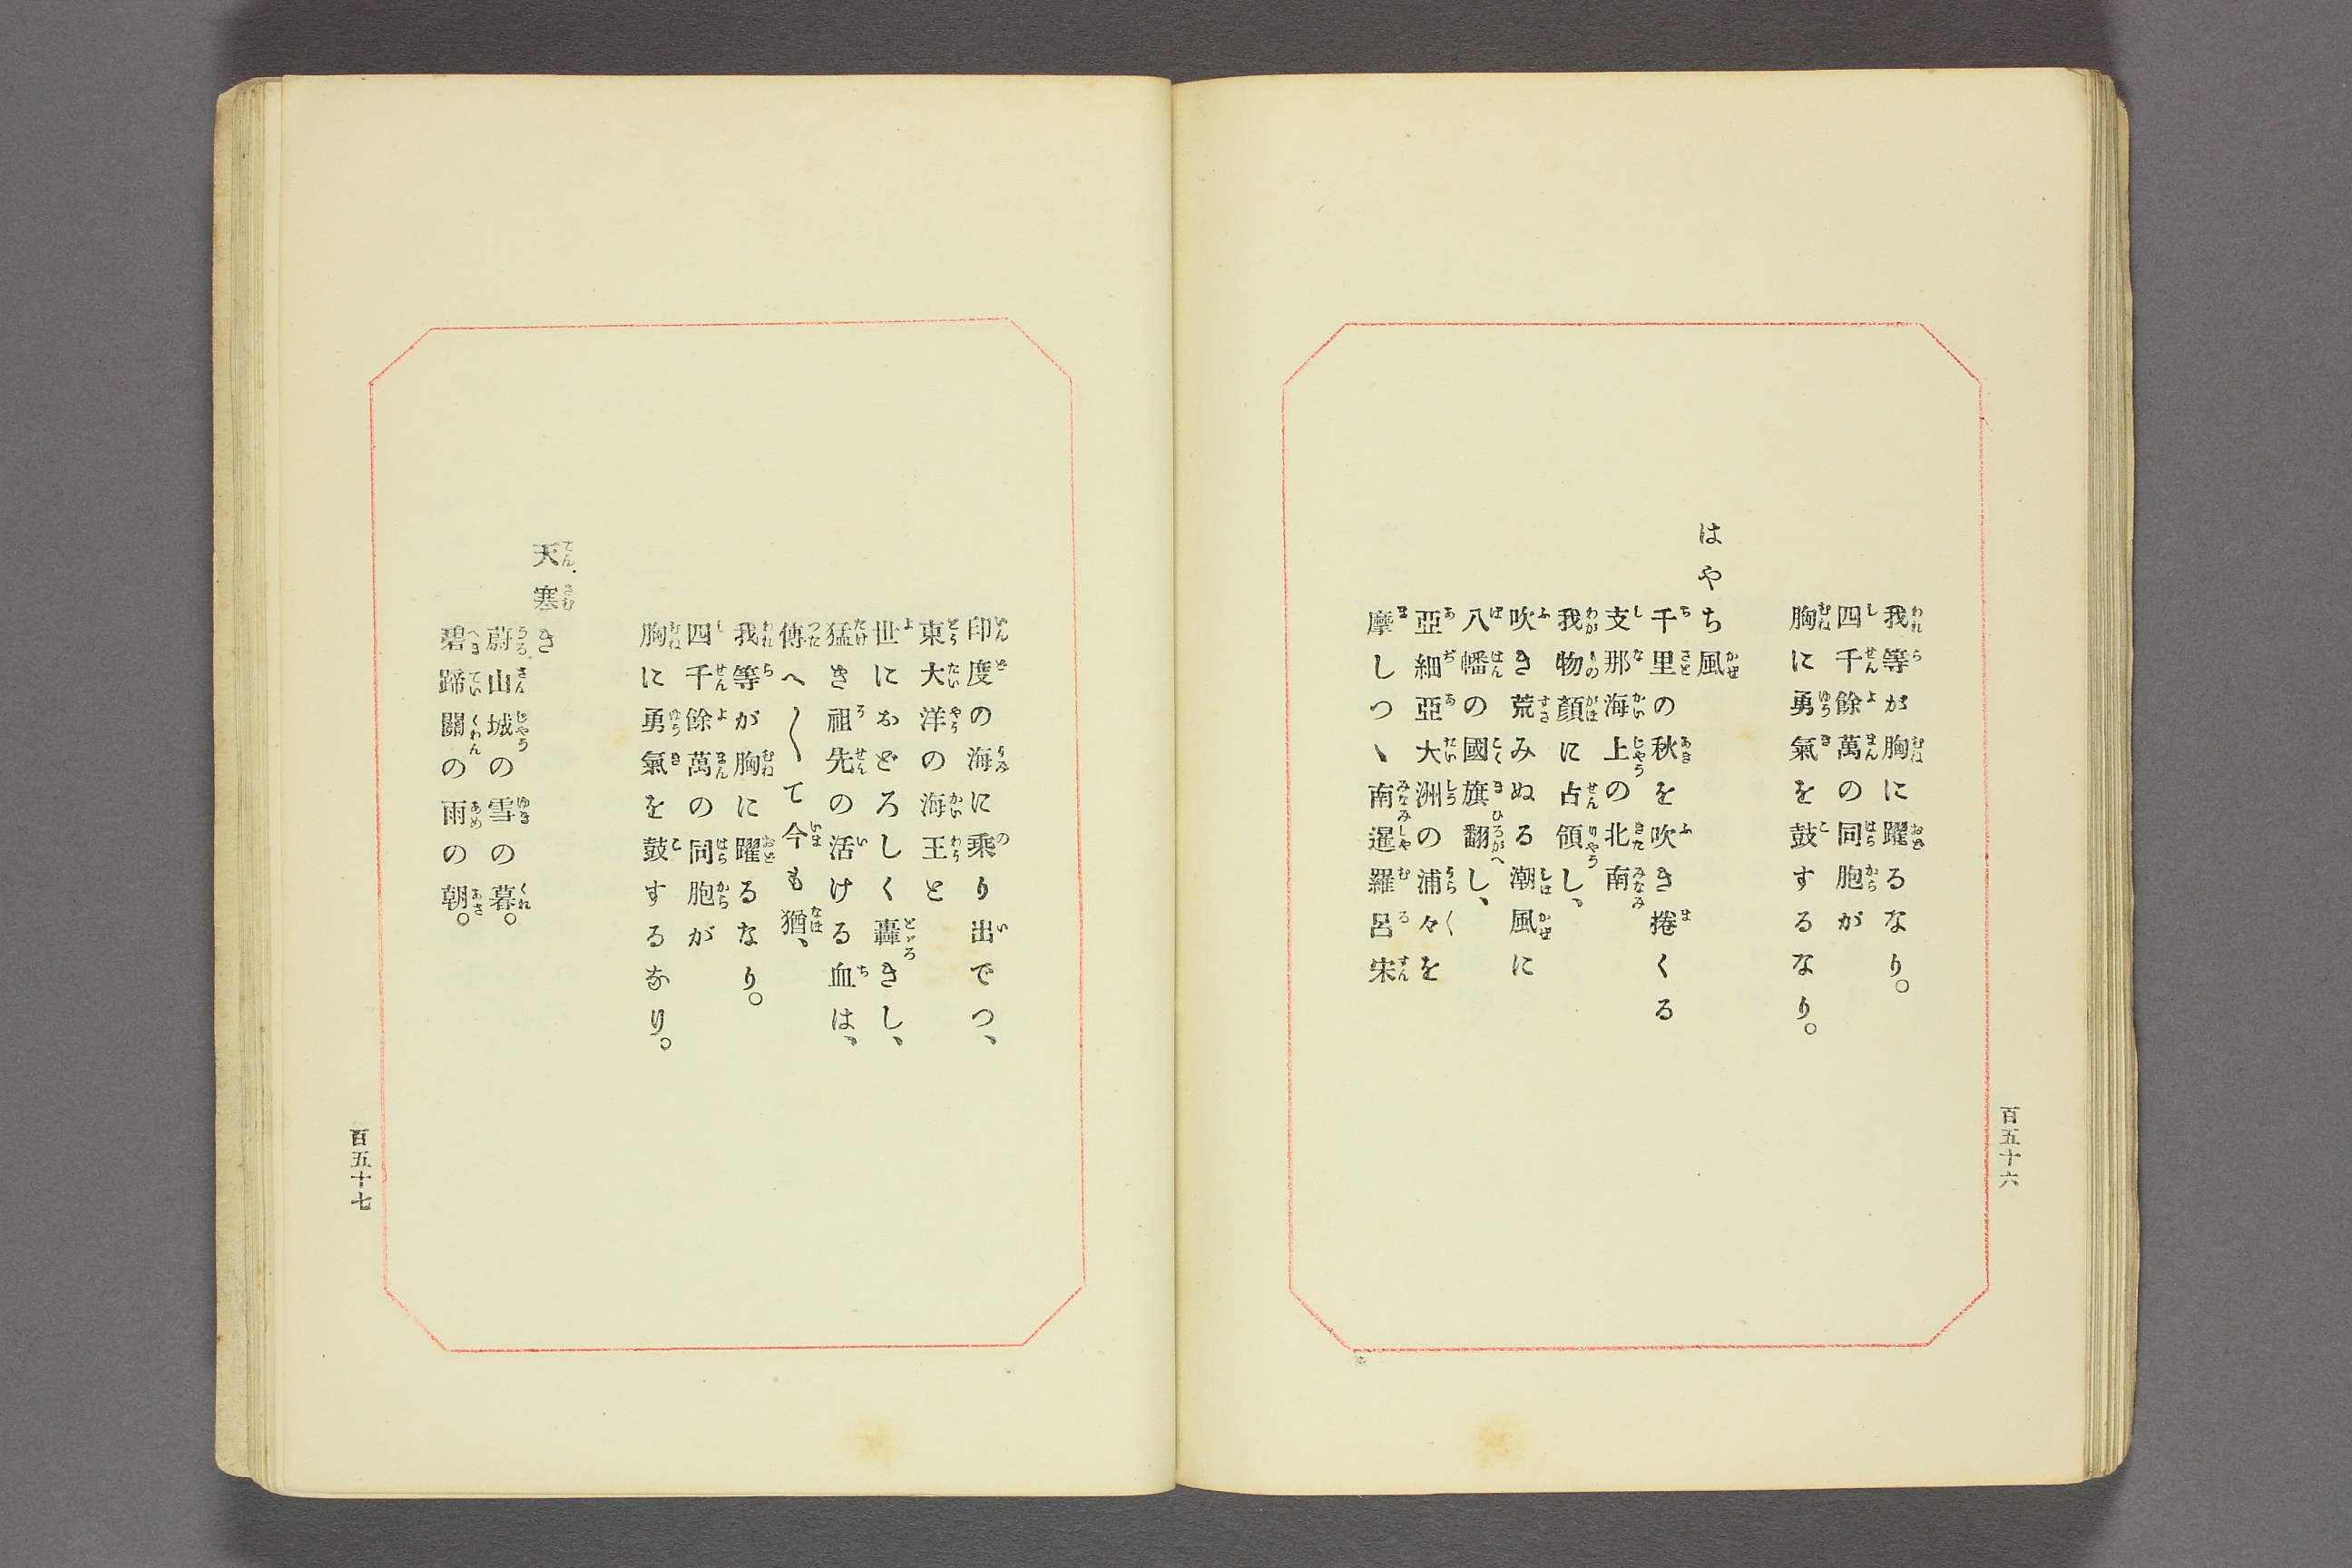 我等が胸に躍るなり。
四千餘萬の同胞が
胸に勇氣を鼓するなり。
はやち風
千里の秋を吹き捲くる
支那海上の北南
我物顏に占領し、
吹き荒みぬる潮風に
八幡の國旗翻へし、
亞細亞大洲の浦々を
摩しつゝ南暹羅呂宋
百五十六
印度の海に乘り出でつ、
東大洋の海王と
世におどろしく轟きし、
猛き祖先の活ける血は、
傳へ〱て今も猶、
我等が胸に躍るなり。
四千餘萬の同胞が
胸に勇氣を鼓するなり。
天寒き
蔚山城の雪の暮。
碧蹄關の雨の朝。
百五十七